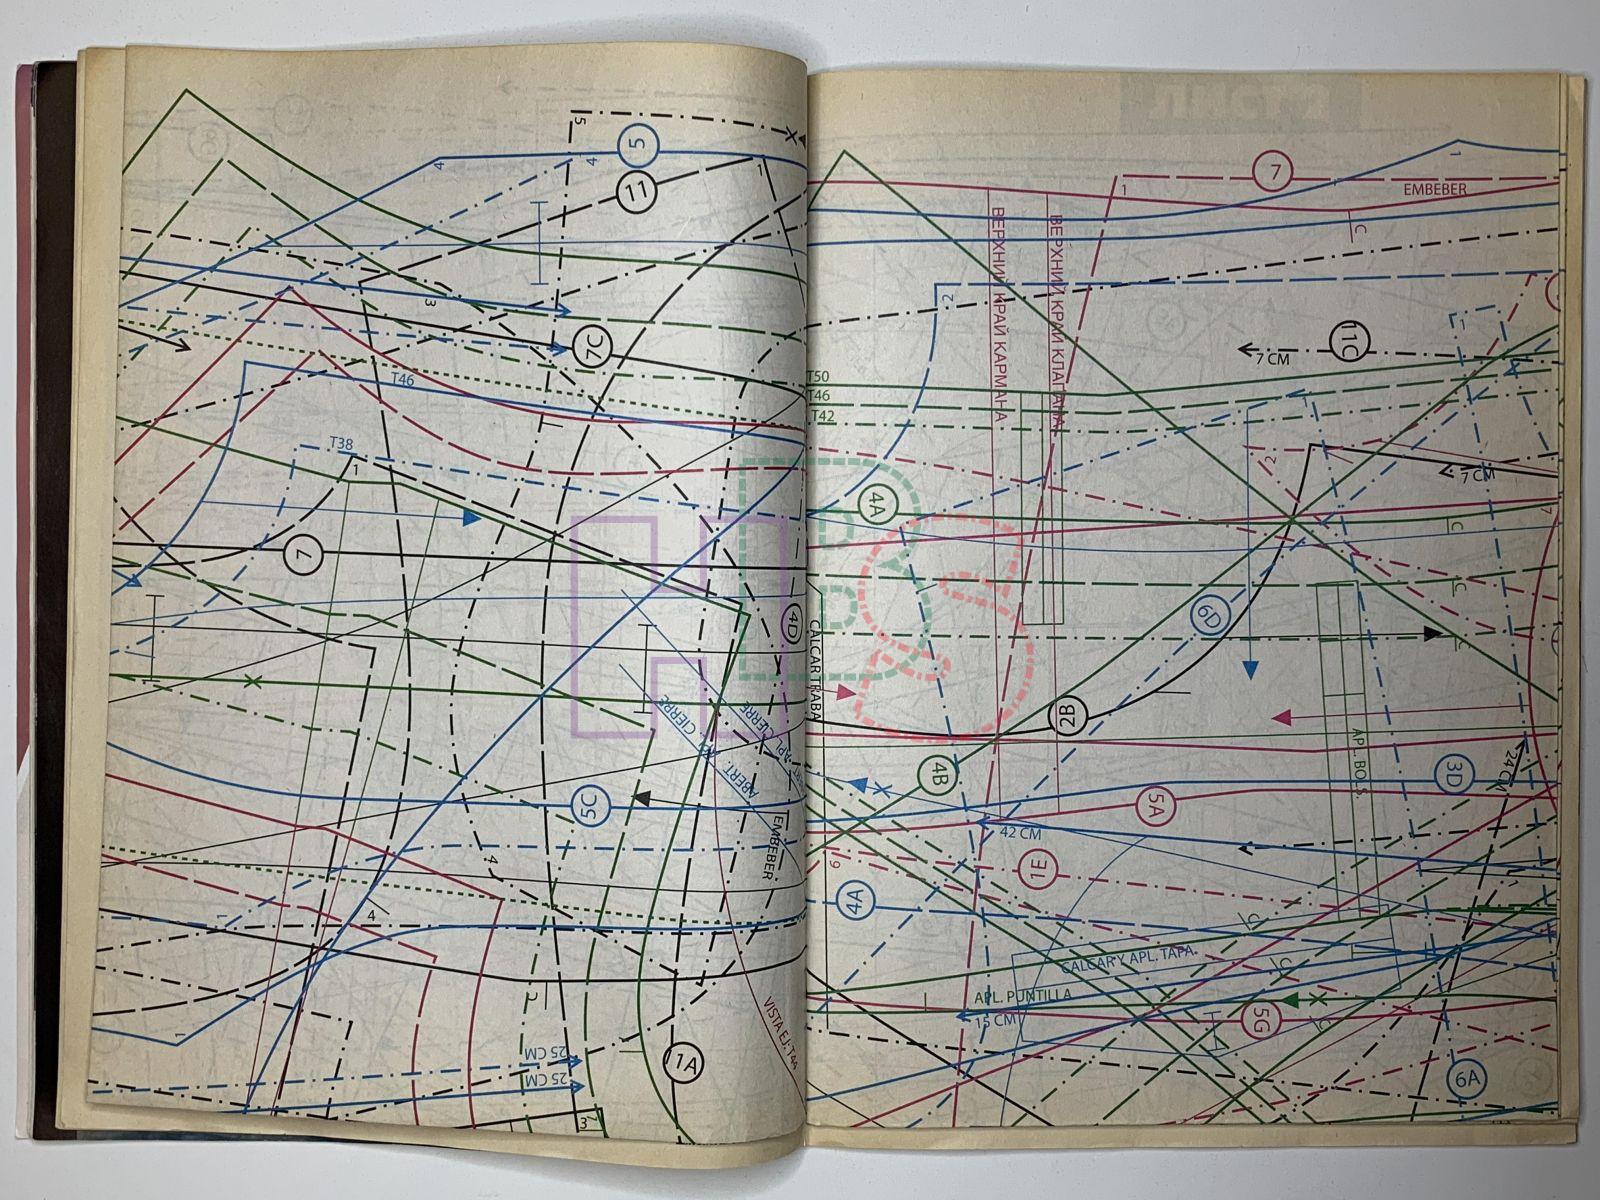 5
5
4
4
11
1
3
7C
T46
T38
1
7
4D
CALCAR TRABA
APL. CIERRE
ABERT.
5C
EMBEBER
4
4
VISTA EJ. T44
1
25 CM
25 CM
2
1A
3
7
1
EMBEBER
1
C
ВЕРХНИЙ КРАЙ КАРМАНА
ВЕРХНИЙ КРАЙ КЛАПАНА
2
1
7 CM
11C
T50
T46
T42
2
7 CM
4A
C
7
C
6D
C
2B
APL. BOLS.
4B
3D
24 CM
5A
42 CM
1E
6
4A
C
CALCAR Y APL. TAPA
C
APL. PUNTILLA
15 CM
5G
C
6A